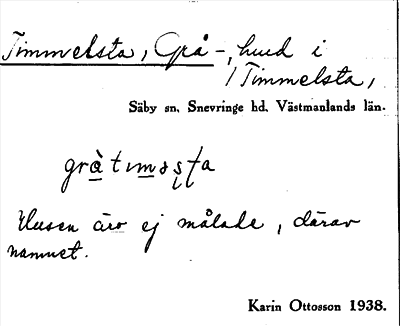 Timmelsta, Grå-, hmd i
/ Timmelsta,
Säby sn. Snevringe hd. Västmanlands län.
grà̱tım̱sşta
Husen äro ej målade, därav
namnet.
Karin Ottosson 1938.